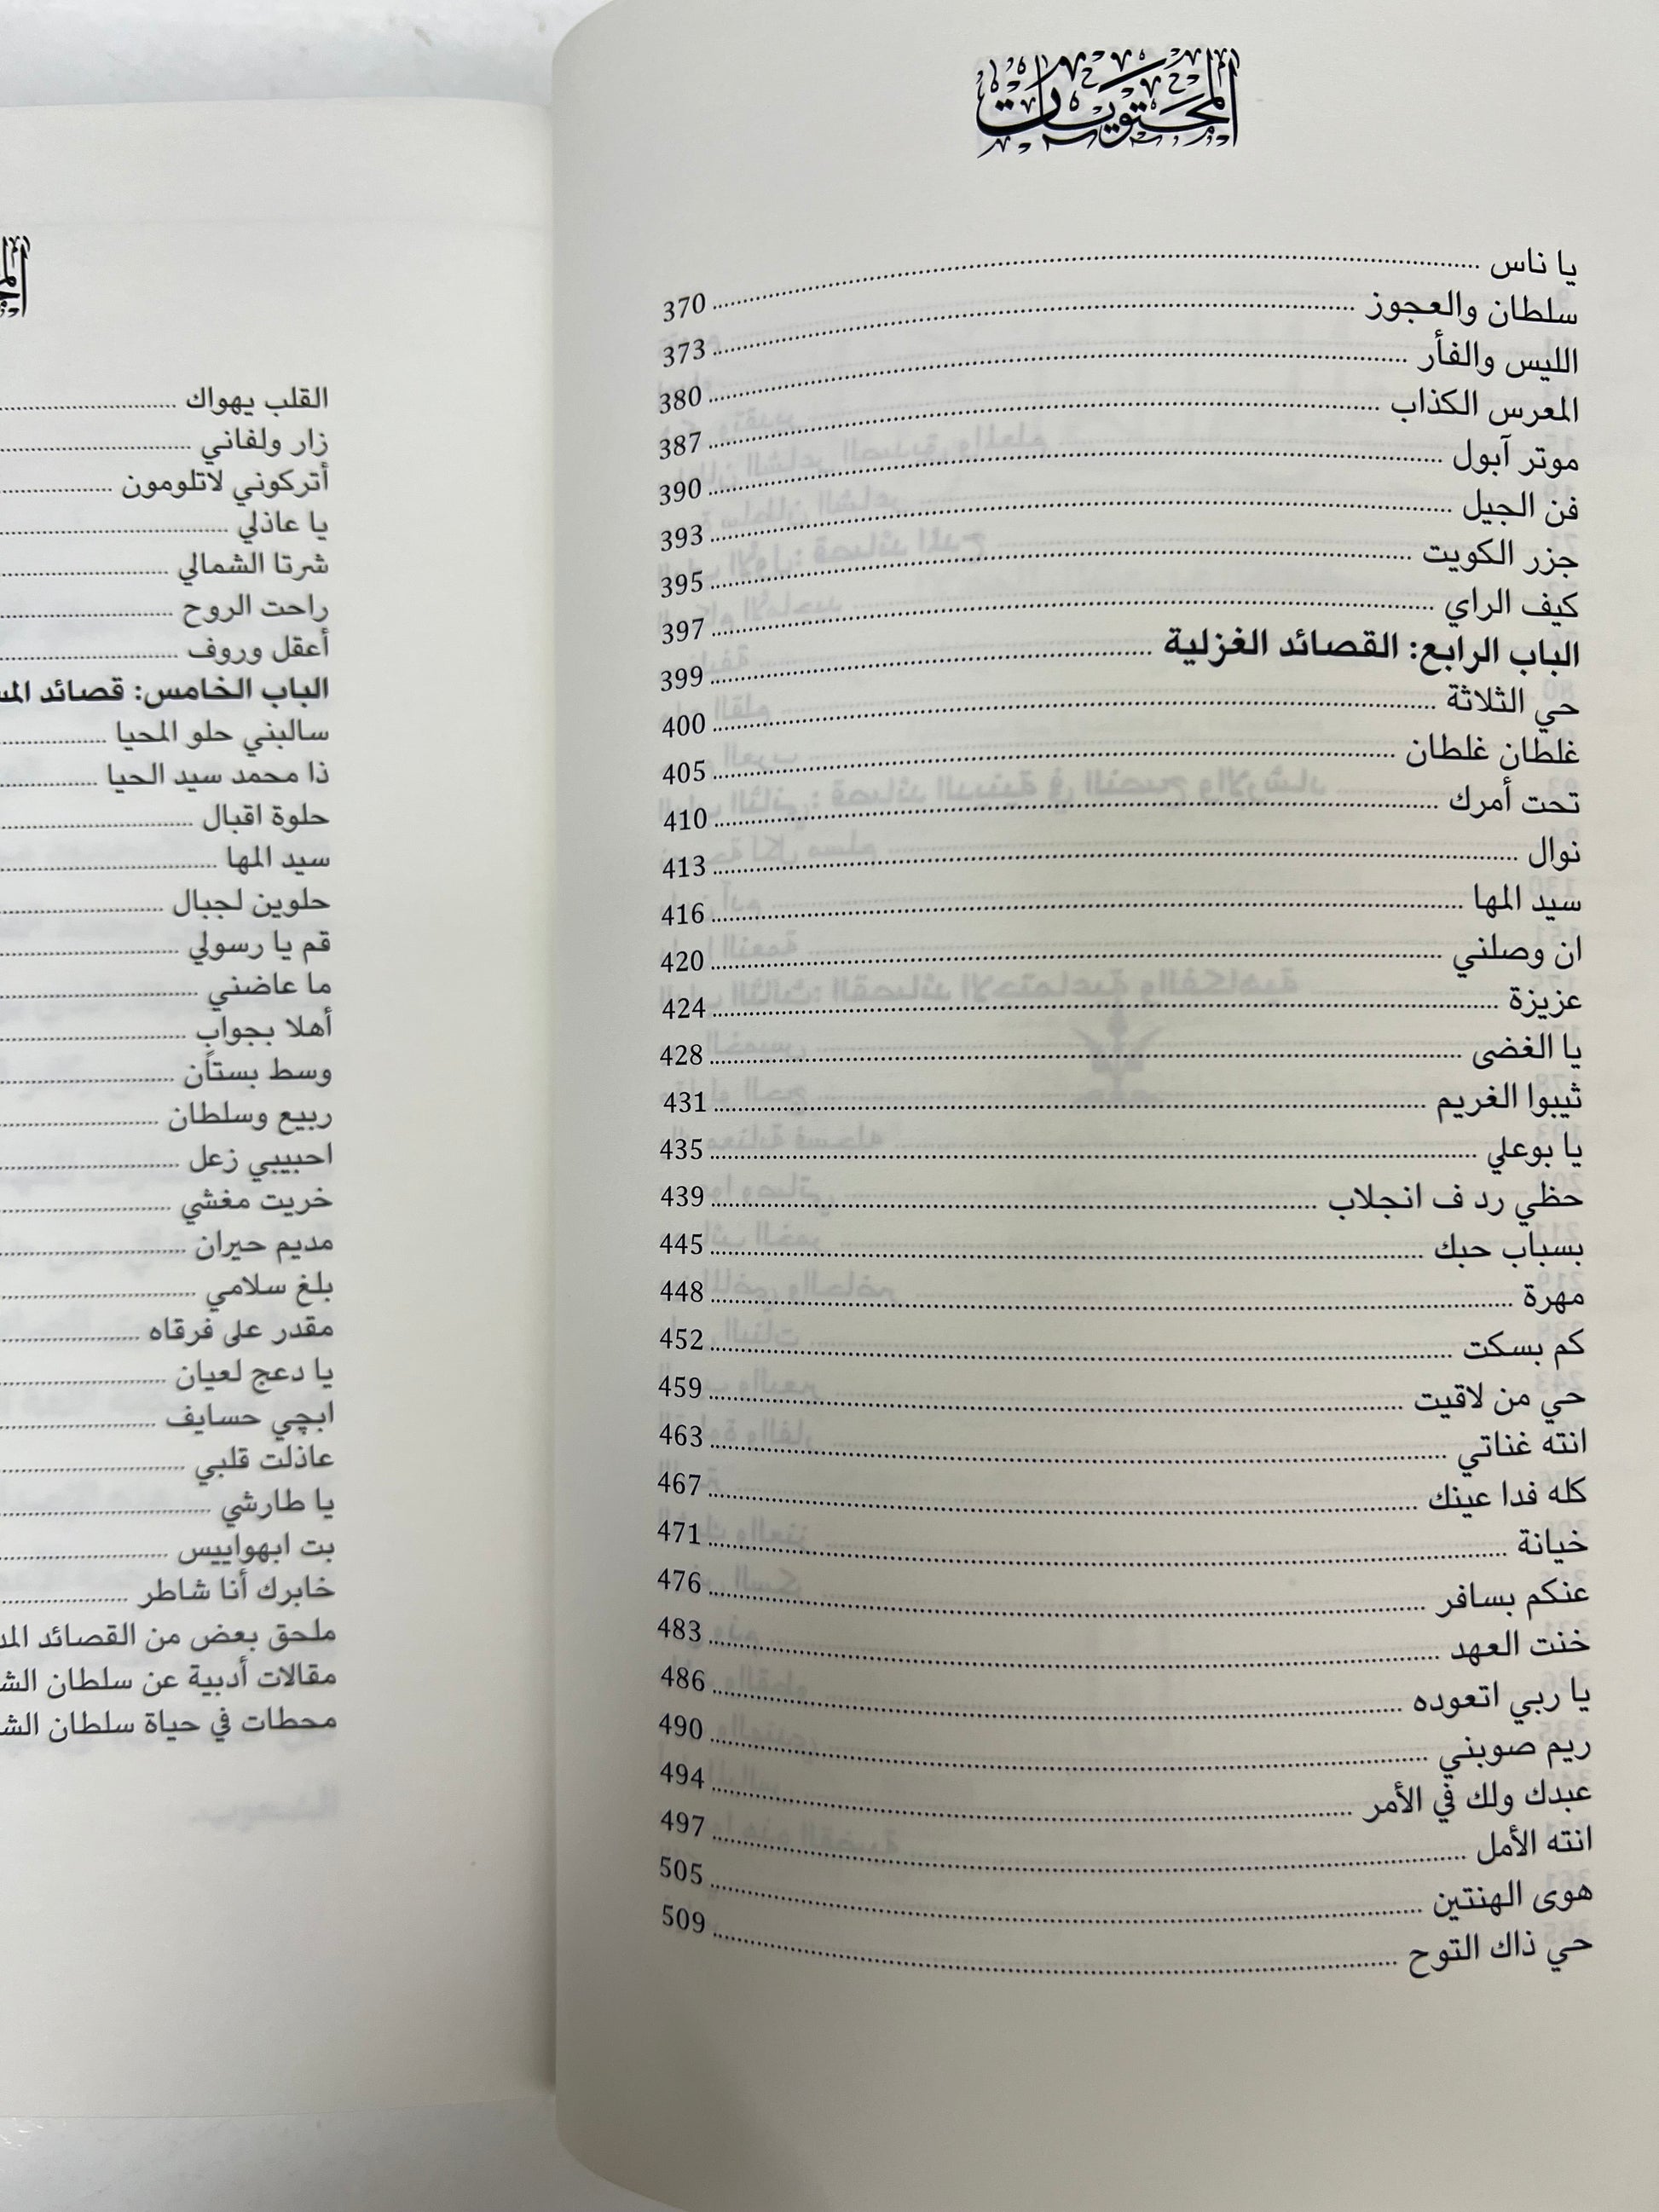 المحتويات
يا ناس 370
سلطان والعجوز 373
الليس والفأر 380
المعرس الكذاب 387
موتر آبول 390
فن الجيل 393
جزر الكويت 395
كيف الراي 397
الباب الرابع: القصائد الغزلية 399
حي الثلاثة 400
غلطان غلطان 405
تحت أمرك 410
نوال 413
سيد المها 416
ان وصلني 420
عزيزة 424
يا الغضى 428
ثيبوا الغريم 431
يا بوعلي 435
حظي رد ف انجلاب 439
بسباب حبك 445
مهرة 448
كم بسكت 452
حي من لاقيت 459
انته غناتي 463
كله فدا عينك 467
خيانة 471
عنكم بسافر 476
خنت العهد 483
يا ربي اتعوده 486
ريم صوبني 490
عبدك ولك في الأمر 494
انته الأمل 497
هوى الهنتين 505
حي ذاك التوح 509
القلب يهواك
زار ولفاني
أتركوني لاتلومون
يا عاذلي
شرتا الشمالي
راحت الروح
أعقل وروف
الباب الخامس: قصائد
سالبني حلو المحيا
ذا محمد سيد الحيا
حلوة اقبال
سيد المها
حلوين لجبال
قم يا رسولي
ما عاضني
أهلا بجواب
وسط بستان
ربيع وسلطان
احبيبي زعل
خريت مغشي
مديم حيران
بلغ سلامي
مقدر على فرقاه
يا دعج لعيان
ابچي حسايف
عاذلت قلبي
يا طارشي
بت ابهواييس
خابرك أنا شاطر
ملحق بعض من القصائد
مقالات أدبية عن سلطان
محطات في حياة سلطان